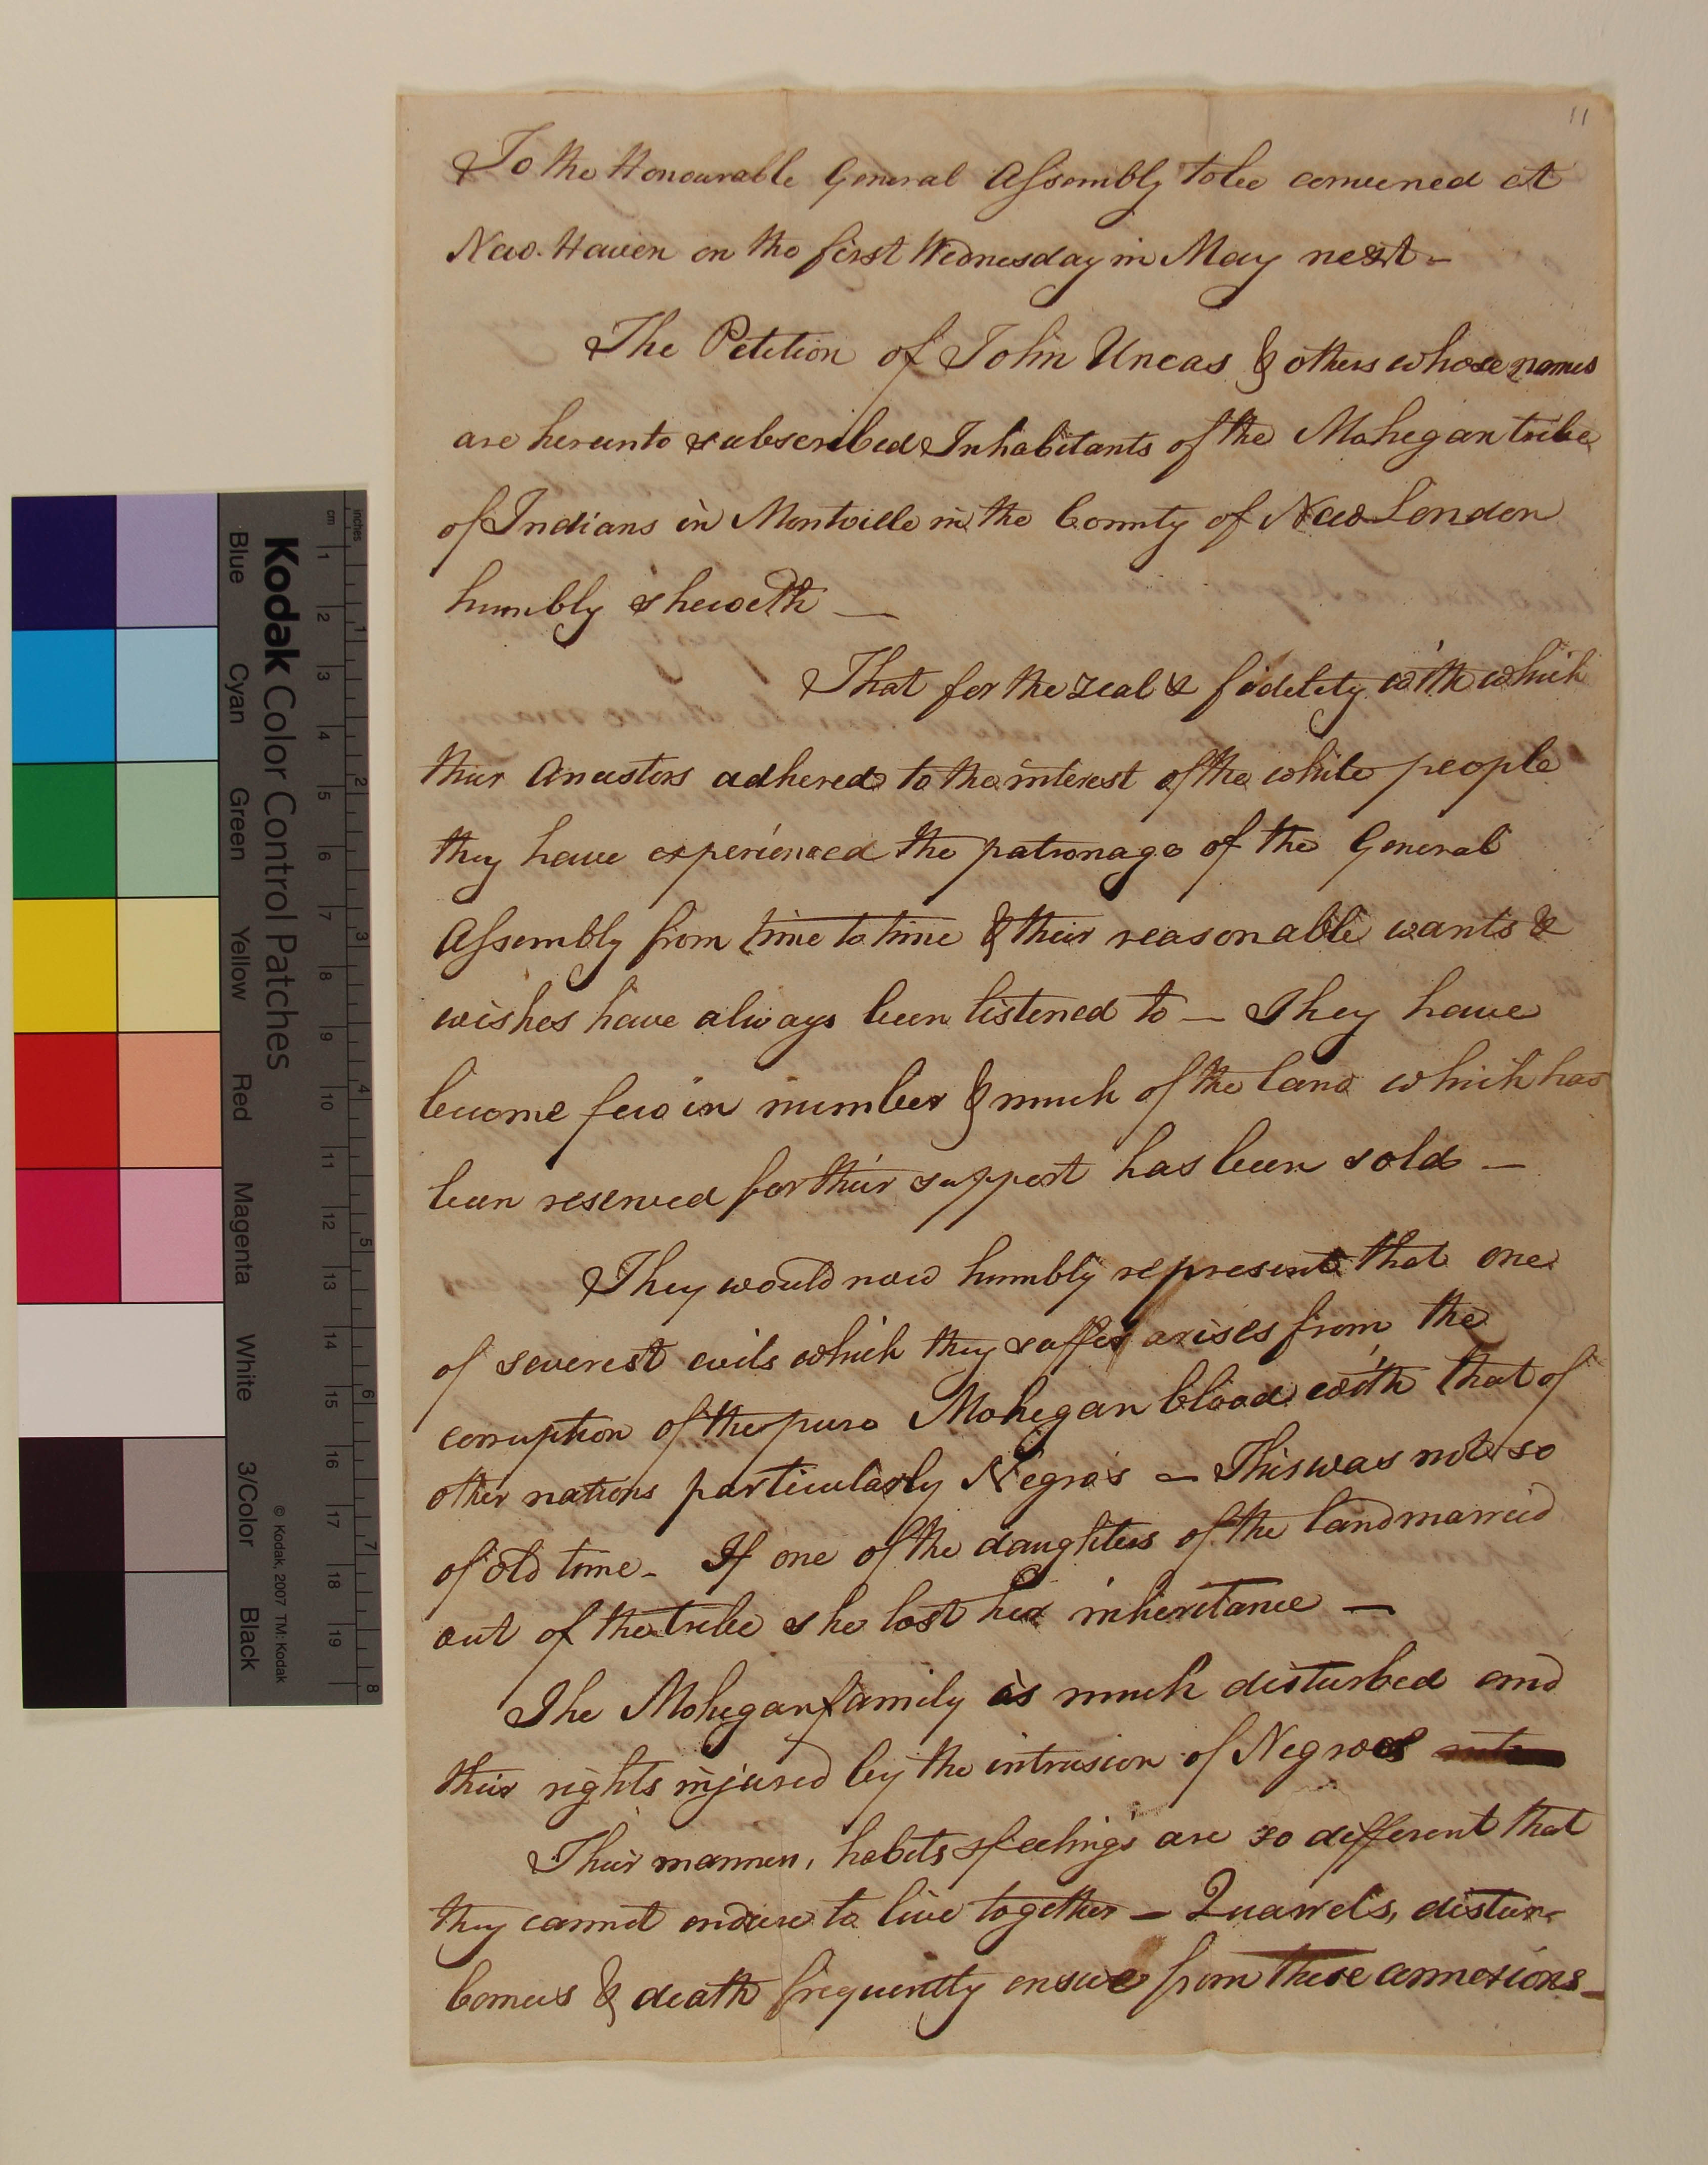 11
To the Honourable General Assembly to be convened at
New-Haven on the first Wednesday in May next -
The Petition of John Uncas & others whose names
are hereunto subscribed Inhabitants of the Mohegan tribe
of Indians in Montville in the County of New London
humbly sheweth —
That for the zeal & fidelity with which
their Ancestors adhered to the interest of the white people
they have experienced the patronage of the General
Assembly from time to time & their reasonable wants &
wishes have always been listened to — They have
become few in number & much of the land which has
been reserved for their support has been sold —
They would now humbly represent that one
of severest evils which they suffer arises from the
corruption of the pure Mohegan blood with that of
other nations particularly Negros — This was not so
of old time - If one of the daughters of the land married
out of the tribe she lost her inheritance —
The Mohegan family is much disturbed and
their rights injured by the intrusion of Negroes
Their manners, habits & feelings are so different that
they cannot endure to live together — Quarrels, distur-
bances & death frequently ensue from these connexions -
Kodak Color Control Patches
© Kodak 2007 TM: Kodak
Blue Cyan Green Yellow Red Magenta White 3/Color Black
cm 1 2 3 4 5 6 7 8 9 10 11 12 13 14 15 16 17 18 19
inches 1 2 3 4 5 6 7 8